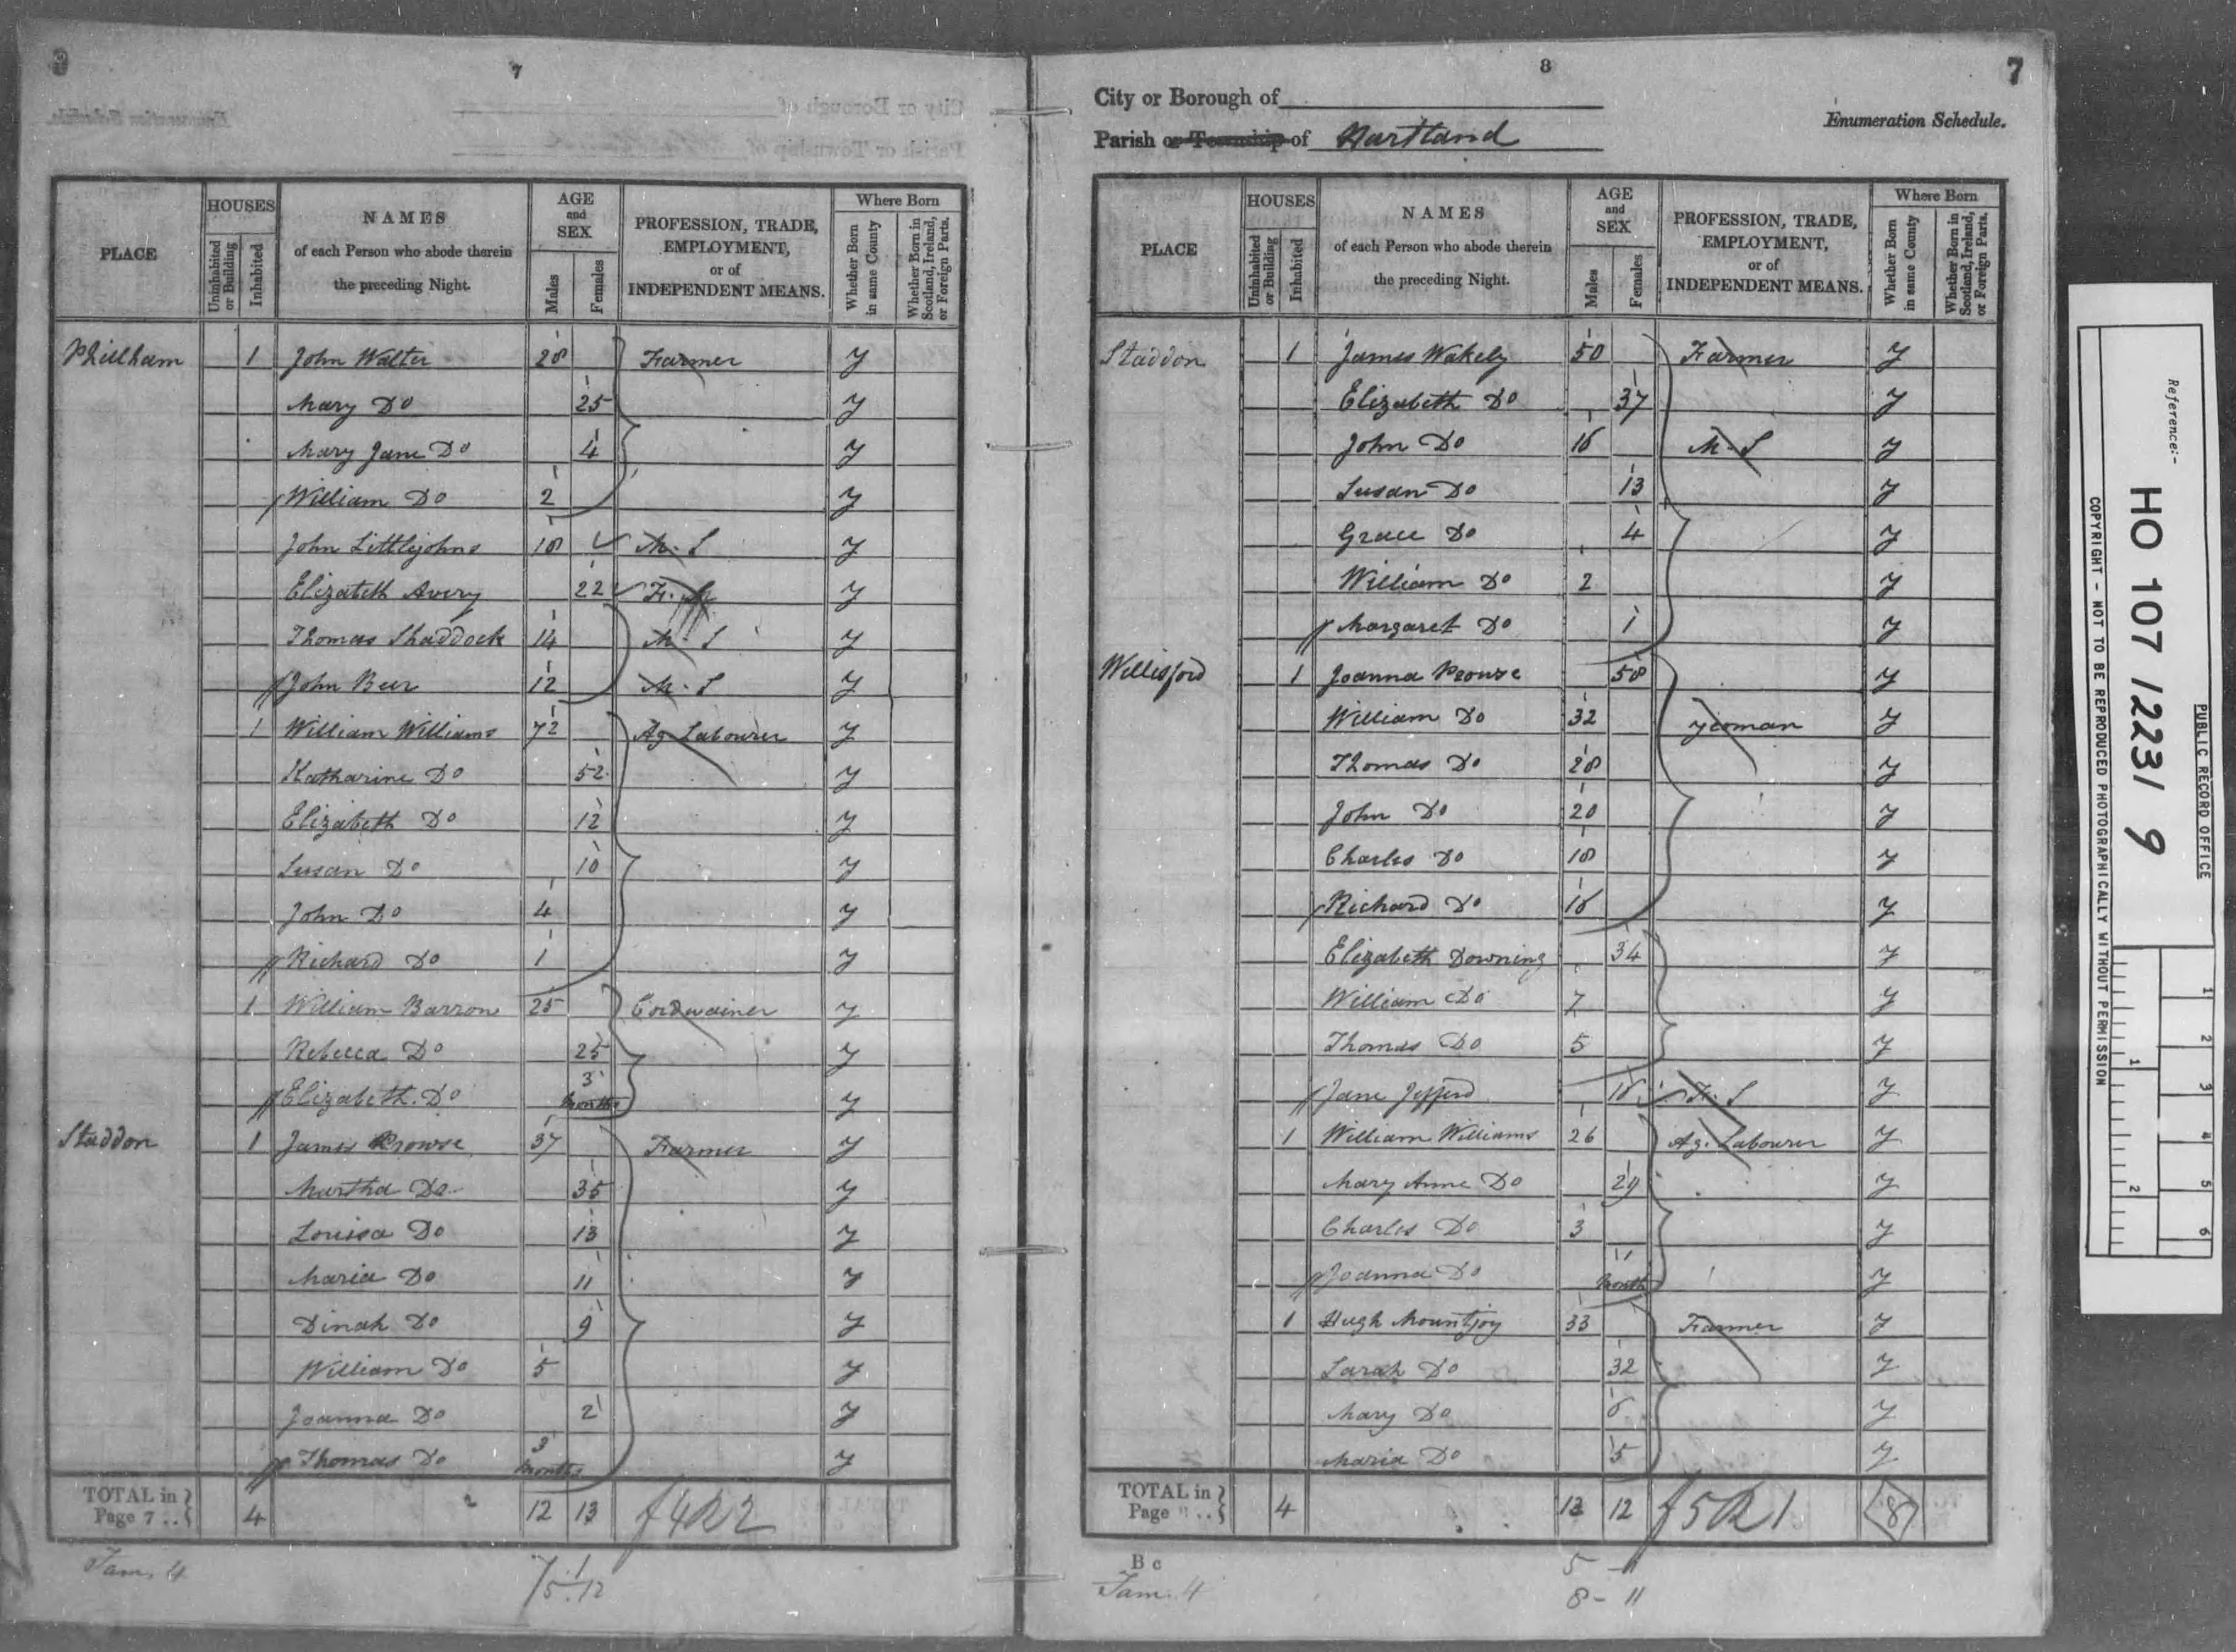 7
PLACE
HOUSES
Uninhabited or Building
Inhabited
NAMES
of each Person who abode therein
the preceding Night.
AGE
and
SEX
Males
Females
PROFESSION, TRADE,
EMPLOYMENT,
or of
INDEPENDENT MEANS.
Where Born
Whether Born in same County
Whether Born in Scotland, Ireland, or Foreign Parts.
Philham 1 John Walter 28 Farmer Y
Mary Do 25 Y
Mary Jane Do 4 Y
William Do 2 Y
John Littlejohns 18 M. S Y
Elizabeth Avery 22 F. S Y
Thomas Shaddock 14 M. S Y
John Beer 12 M. S Y
1 William Williams 72 Ag Labourer Y
Katharine Do 52 Y
Elizabeth Do 12 Y
Susan Do 10 Y
John Do 4 Y
Richard Do 1 Y
1 William Barron 25 Cordwainer Y
Rebecca Do 25 Y
Elizabeth Do 3 months Y
Staddon 1 James Prowse 37 Farmer Y
Martha Do 35 Y
Louisa Do 13 Y
Maria Do 11 Y
Dinah Do 9 Y
William Do 5 Y
Joanna Do 2 Y
Thomas Do 3 months Y
TOTAL in Page 7 .. 4 12 13 f4R2
Fam. 4
8
7
City or Borough of
Parish or Township of Hartland
Enumeration Schedule.
PLACE
HOUSES
Uninhabited or Building
Inhabited
NAMES
of each Person who abode therein
the preceding Night.
AGE
and
SEX
Males
Females
PROFESSION, TRADE,
EMPLOYMENT,
or of
INDEPENDENT MEANS.
Where Born
Whether Born in same County
Whether Born in Scotland, Ireland, or Foreign Parts.
Staddon 1 James Wakely 50 Farmer Y
Elizabeth Do 37 Y
John Do 16 M. S Y
Susan Do 13 Y
Grace Do 4 Y
William Do 2 Y
Margaret Do 1 Y
Willisford 1 Joanna Prouse 58 Y
William Do 32 Yeoman Y
Thomas Do 28 Y
John Do 20 Y
Charles Do 18 Y
Richard Do 16 Y
Elizabeth Downing 34 Y
William Do 7 Y
Thomas Do 5 Y
Jane Jefferd 16 F. S Y
1 William Williams 26 Ag. Labourer Y
Mary Anne Do 29 Y
Charles Do 3 Y
Joanna Do 11 months Y
1 Hugh Mountjoy 33 Farmer Y
Sarah Do 32 Y
Mary Do 6 Y
Maria Do 5 Y
TOTAL in Page .. 4 13 12 f5R1 8
B c
Fam. 4
5 - 11
8 - 11
Reference:-
HO 107 / 223 / 9
PUBLIC RECORD OFFICE
COPYRIGHT - NOT TO BE REPRODUCED PHOTOGRAPHICALLY WITHOUT PERMISSION
1 2 3 4 5 6
1 2